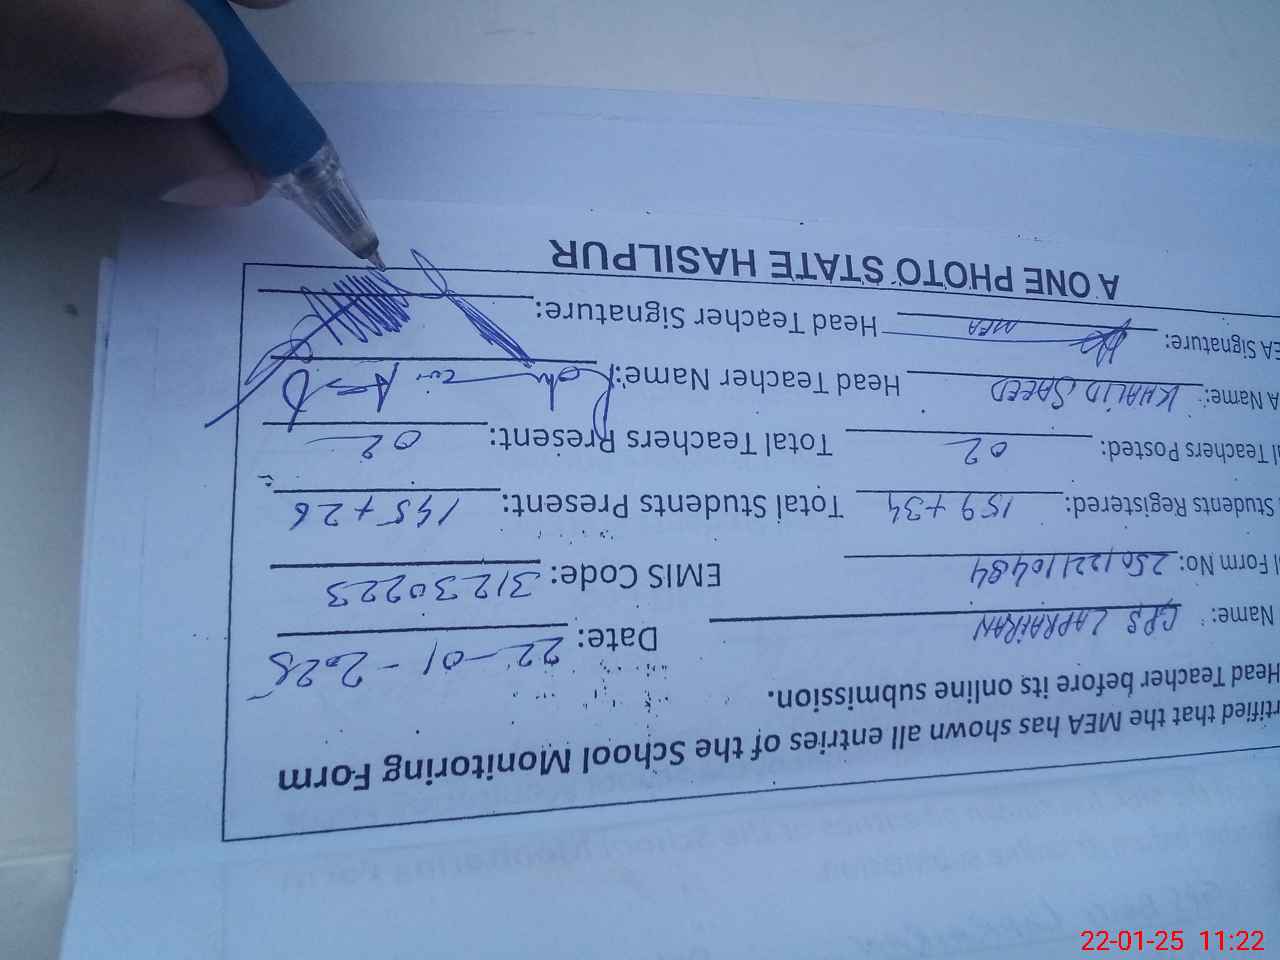 rtified that the MEA has shown all entries of the School Monitoring Form
Head Teacher before its online submission.
Name: GPS LAPRAIRAN Date: 22-01-2025
l Form No: 250122110484 EMIS Code: 31230223
Students Registered: 159+34 Total Students Present: 145+26
l Teachers Posted: 02 Total Teachers Present: 02
A Name: KHALID SAEED Head Teacher Name:
EA Signature: MEA Head Teacher Signature:
A ONE PHOTO STATE HASILPUR
22-01-25 11:22